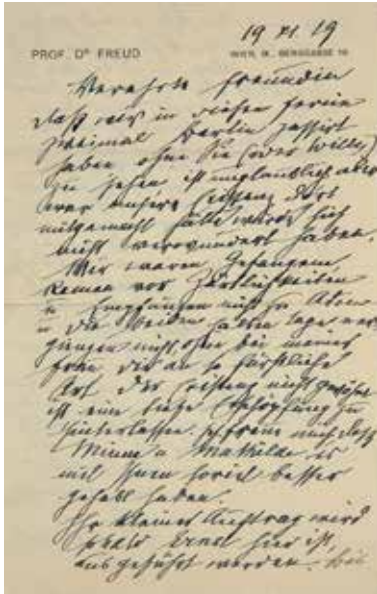 19 XI 19
PROF. Dr FREUD
WIEN, IX., BERGGASSE 19
Verehrte Freundin
Daß wir in diesen Ferien
zweimal Berlin passirt
haben ohne Sie (oder Willy)
zu sehen, ist unglaublich aber
wer unsere Existenz dort
mitgemacht hätte würde sich
nicht verwundert haben.
Wir waren Gefangene,
kamen vor Zärtlichkeiten
u Empfängen nicht zu Atem
u die beiden Tage ver
giengen nicht ohne bei meiner
Frau, die an so fürstliche
Art der Existenz nicht gewöhnt
ist eine tiefe Erschöpfung zu
hinterlassen. Ich freue mich daß
Minna u Mathilde es
mit Ihnen soviel besser
gehabt haben.
Ihr kleiner Auftrag wird
sobald Ernst hier ist,
ausgeführt werden.